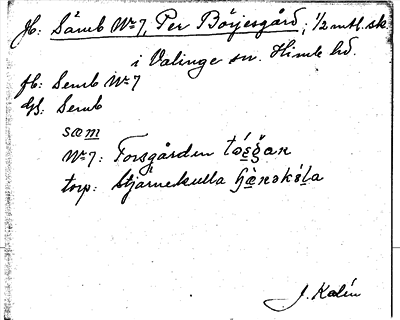 Jb: Sämb No 7, Per Börjesgård, 1/2 mtl. sk.
i Valinge sn. Himle hd.
fb: Semb No 7
GS: Semb
sæm
No 7: Forsgården
torp: Stjärnekulla
J. Kalén